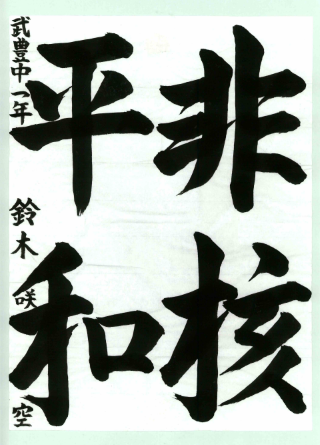 非核
平和
武豊中一年 鈴木咲空